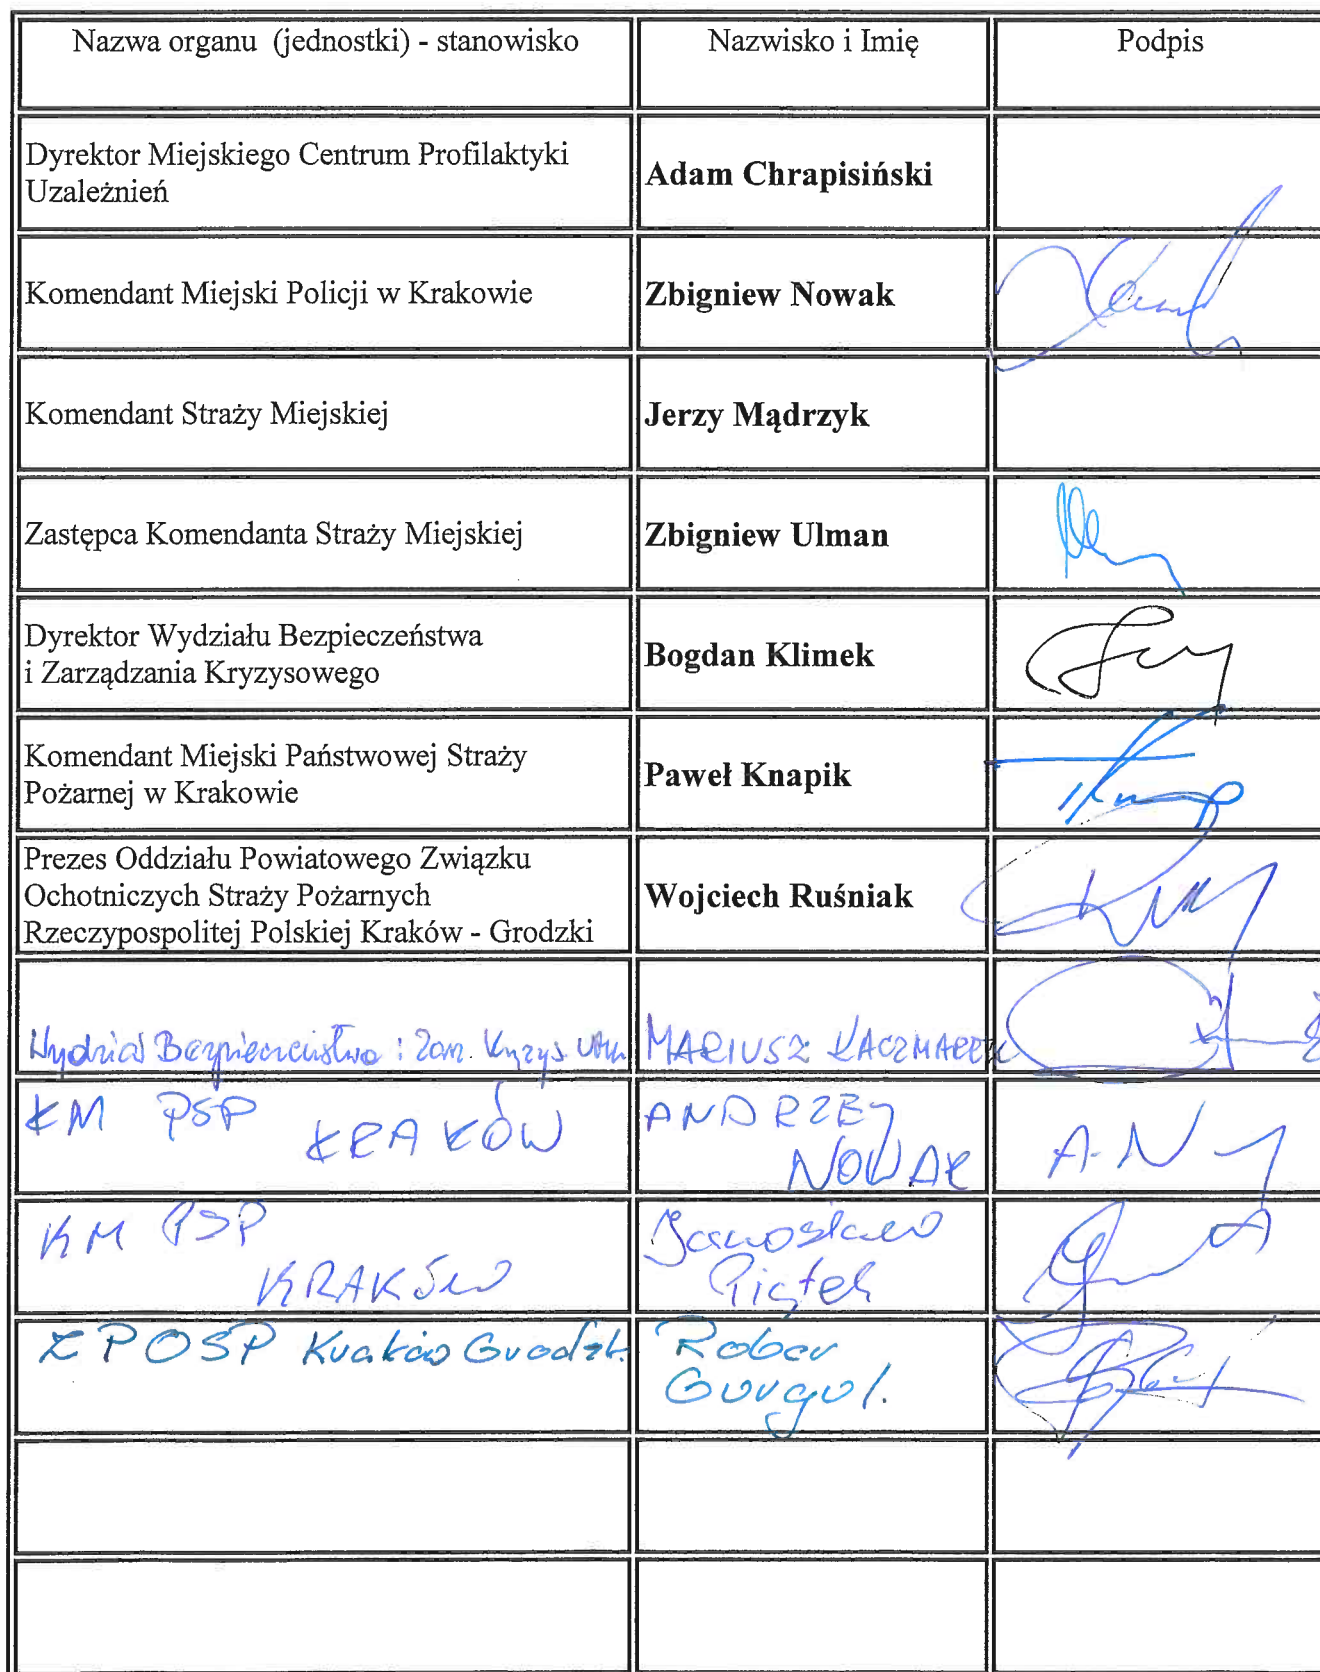 Nazwa organu (jednostki) - stanowisko
Nazwisko i Imię
Podpis
Dyrektor Miejskiego Centrum Profilaktyki
Uzależnień
Adam Chrapisiński
Komendant Miejski Policji w Krakowie
Zbigniew Nowak
Komendant Straży Miejskiej
Jerzy Mądrzyk
Zastępca Komendanta Straży Miejskiej
Zbigniew Ulman
Dyrektor Wydziału Bezpieczeństwa
i Zarządzania Kryzysowego
Bogdan Klimek
Komendant Miejski Państwowej Straży
Pożarnej w Krakowie
Paweł Knapik
Prezes Oddziału Powiatowego Związku
Ochotniczych Straży Pożarnych
Rzeczypospolitej Polskiej Kraków - Grodzki
Wojciech Ruśniak
Wydział Bezpieczeństwa i Zarz. Kryzys. UMK
MARIUSZ KACZMAREK
KM PSP
KRAKÓW
ANDRZEJ
NOWAK
A. N
KM PSP
KRAKÓW
Jarosław
Piątek
ZPOSP Kraków Grodzk.
Robert
Gurgul.